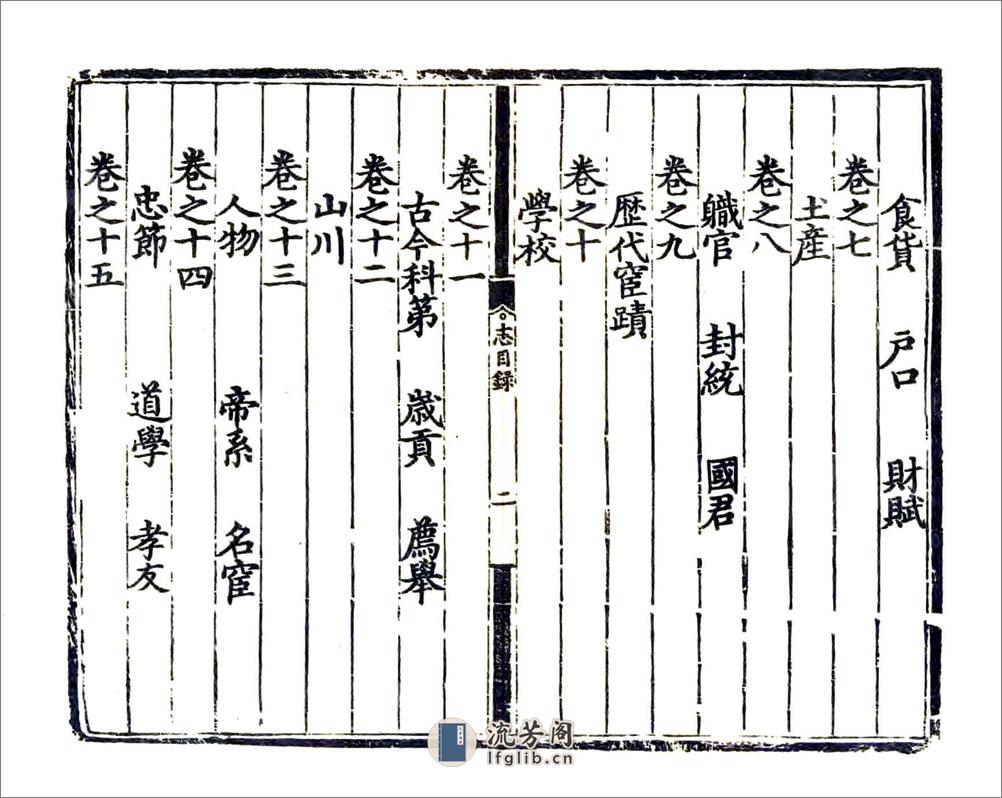 食貨 戶口 財賦
卷之七
土産
卷之八
職官 封統 國君
卷之九
歷代宦蹟
卷之十
學校
志目錄
二
卷之十一
古今科第 歲貢 薦舉
卷之十二
山川
卷之十三
人物 帝系 名宦
卷之十四
忠節 道學 孝友
卷之十五
流芳阁
lfglib.cn